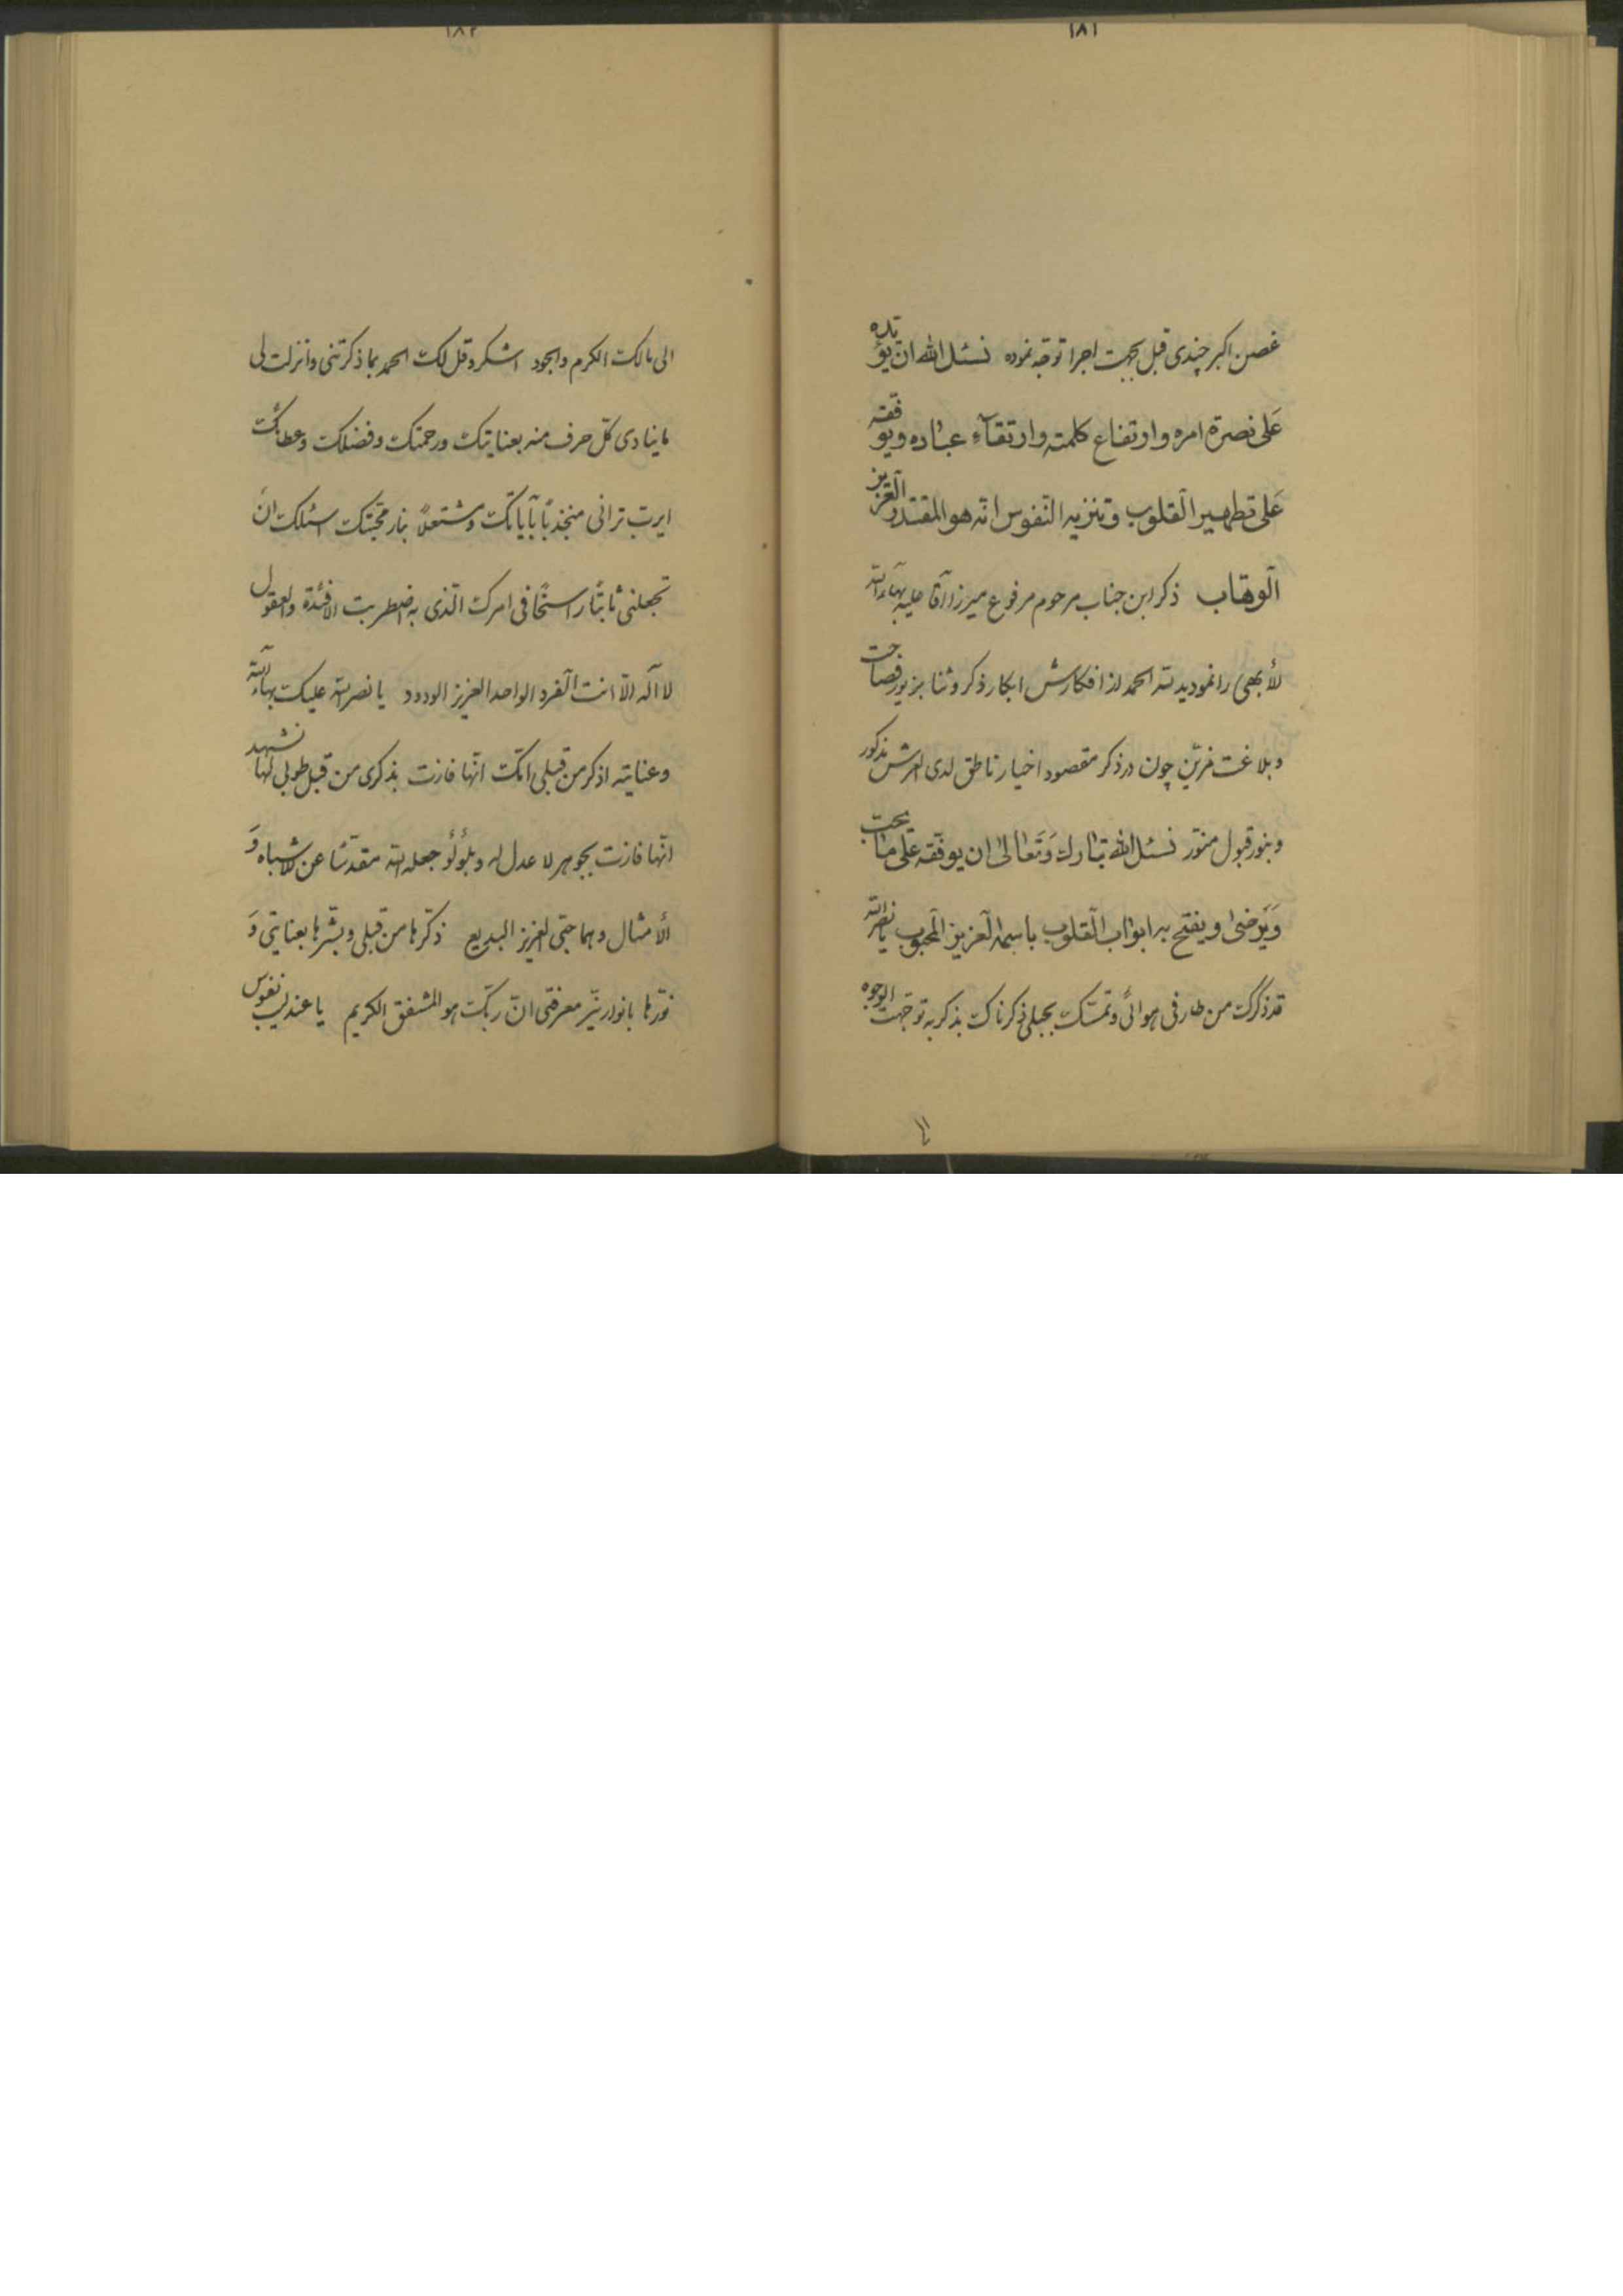 ١٨١
غصن اکبر چندی قبل بجهت اجرا توجّه نموده نسئل الله ان یؤیّده
عَلی نصرة امره و ارتفاع کلمته و ارتقآء عباده و یوفّقه
عَلی تطهیر القلوب و تنزیه النّفوس انّه هو المقتدر العزیز
الوهّاب ذکر ابن جناب مرحوم مرفوع میرزا آقا علیه بهآء الله
الأبهی را نمودید لله الحمد از افکارش ابکار ذکر و ثنا بزیور فصاحت
و بلاغت مزیّن چون در ذکر مقصود اخیار ناطق لدی العرش مذکور
و بنور قبول منوّر نسئل الله تبارک وَتَعالی ان یوفّقه عَلی ما یحبّ
وَیَرضی و یفتح به ابواب القلوب باسمه العزیز المحبوب یا نصرالله
قد ذکرک من طار فی هوائی و تمسّک بحبلی ذکرناک بذکر به توجّهت الوجوه
١٨٢
الی مالک الکرم و الجود اشکر و قل لک الحمد بما ذکرتنی و انزلت لی
ما ینادی کلّ حرف منه بعنایتک و رحمتک و فضلک و عطائک
ایربّ ترانی منجذباً بآیاتک و مشتعلاً بنار محبّتک اسئلک ان
تجعلنی ثابتاً راسخاً فی امرک الّذی به اضطربت الافئدة و العقول
لا اله الّا انت الفرد الواحد العزیز الودود یا نصرالله علیک بهآء الله
و عنایته اذکر من قبلی امّک انّها فازت بذکری من قبل طوبی لها نشهد
انّها فازت بجوهر لا عدل له و بلؤلؤ جعله الله مقدّساً عن الاشباه وَ
الأمثال و هما حبّی العزیز البدیع ذکّرها من قبلی و بشّرها بعنایتی وَ
نوّرها بانوار نیّر معرفتی انّ ربّک هو المشفق الکریم یا عندلیب نفوس